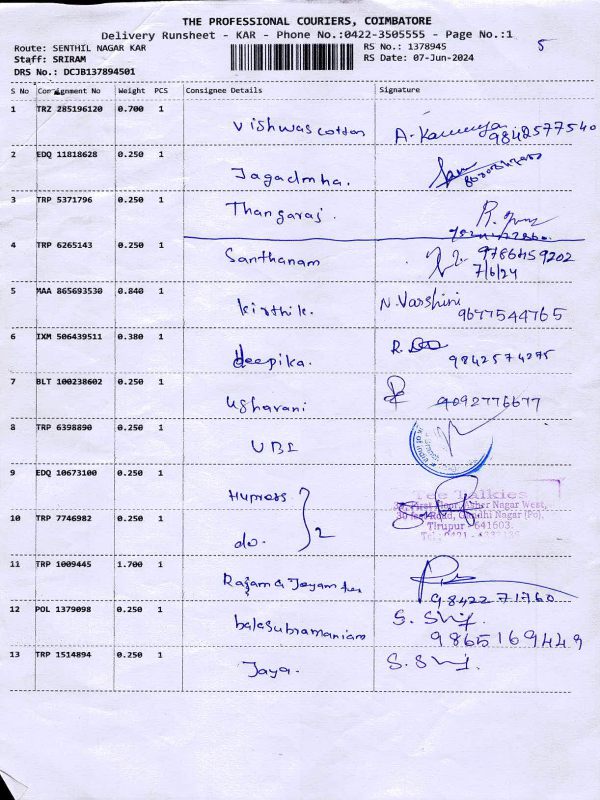 THE PROFESSIONAL COURIERS, COIMBATORE
Delivery Runsheet - KAR - Phone No.:0422-3505555 - Page No.:1
Route: SENTHIL NAGAR KAR RS No.: 1378945 5
Staff: SRIRAM RS Date: 07-Jun-2024
DRS No.: DCJB137894501
S No Consignment No Weight PCS Consignee Details Signature
1 TRZ 285196120 0.700 1 Vishwas cotton 9842577540
2 EDQ 11818628 0.250 1
3 TRP 5371796 0.250 1 Thangaraj.
4 TRP 6265143 0.250 1 Santhanam 9786459202
7/6/24
5 MAA 865693530 0.840 1 Kirthik. N. Varshini
9677544765
6 IXM 506439511 0.380 1 deepika. 9842574275
7 BLT 100238602 0.250 1 Usharani 9092776677
8 TRP 6398890 0.250 1 UBI
9 EDQ 10673100 0.250 1
10 TRP 7746982 0.250 1 do. 2
Gandhi Nagar (Po),
Tirupur - 641603.
11 TRP 1009445 1.700 1
9842271760
12 POL 1379098 0.250 1 balasubramaniam
9865169449
13 TRP 1514894 0.250 1 Jaya.